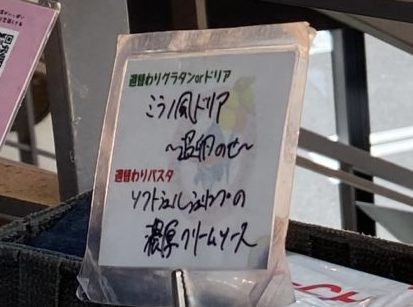 週替わりグラタンorドリア
ミラノ風ドリア
～温卵のせ～
週替わりパスタ
ソフトシェルシュリンプの
濃厚クリームソース